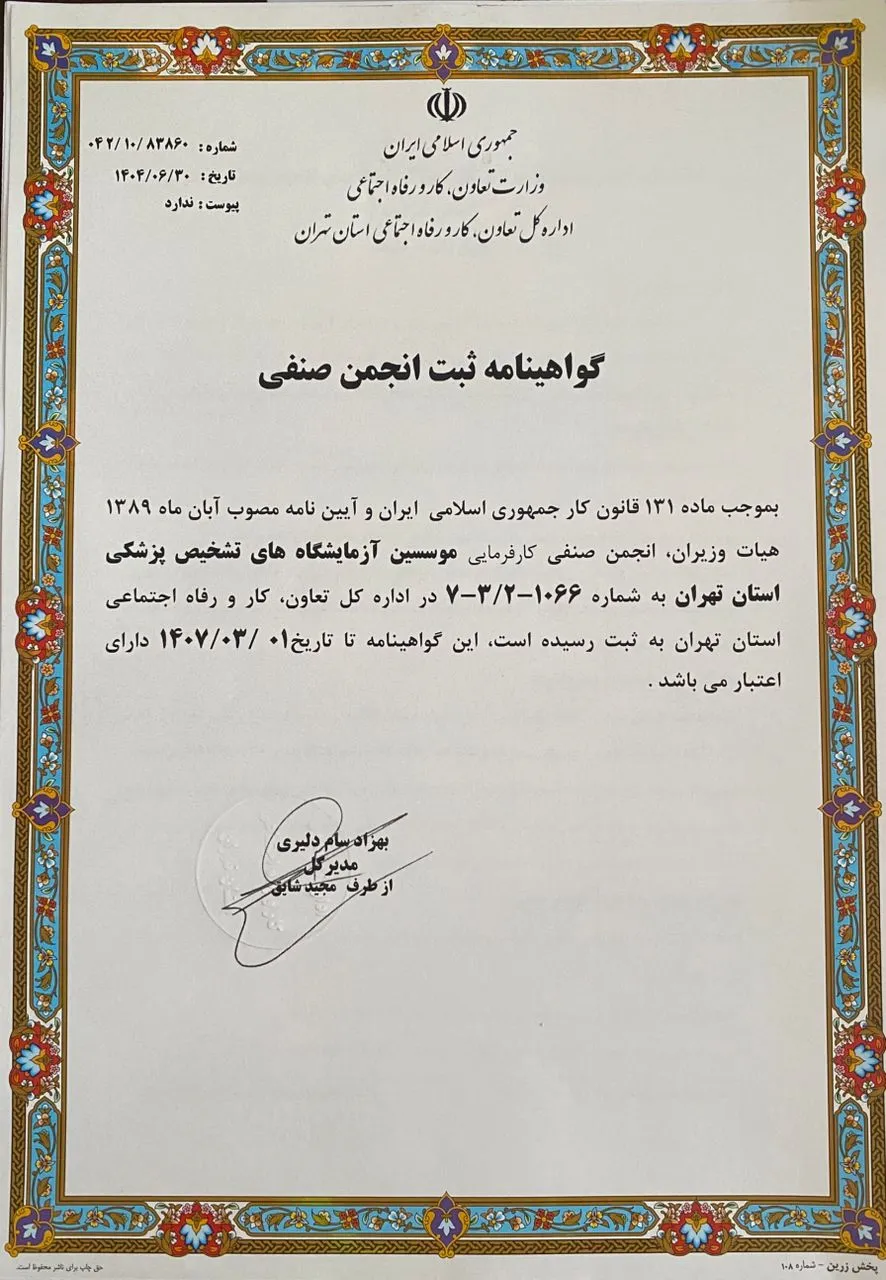 جمهوری اسلامی ایران
وزارت تعاون، کار و رفاه اجتماعی
اداره کل تعاون، کار و رفاه اجتماعی استان تهران
شماره : ۰۴۲/۱۰/۸۳۸۶۰
تاریخ : ۱۴۰۴/۰۶/۳۰
پیوست : ندارد
گواهینامه ثبت انجمن صنفی
بموجب ماده ۱۳۱ قانون کار جمهوری اسلامی ایران و آیین نامه مصوب آبان ماه ۱۳۸۹
هیات وزیران، انجمن صنفی کارفرمایی موسسین آزمایشگاه های تشخیص پزشکی
استان تهران به شماره ۱۰۶۶-۳/۲-۷ در اداره کل تعاون، کار و رفاه اجتماعی
استان تهران به ثبت رسیده است، این گواهینامه تا تاریخ۰۱ /۱۴۰۷/۰۳ دارای
اعتبار می باشد .
بهزاد سام دلیری
مدیر کل
از طرف مجید شایق
پخش زرین - شماره ۱۰۸
حق چاپ برای ناشر محفوظ است.